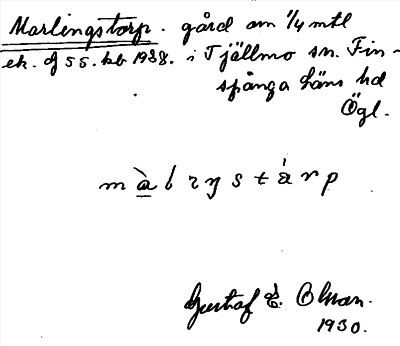 Marlingstorp. gård om 1/4 mtl
ek. bl 55. kb 1938. i Tjällmo sn. Fin-
spånga läns hd
Ögl.
màlzystárp
Gustaf E. Olsson.
1930.